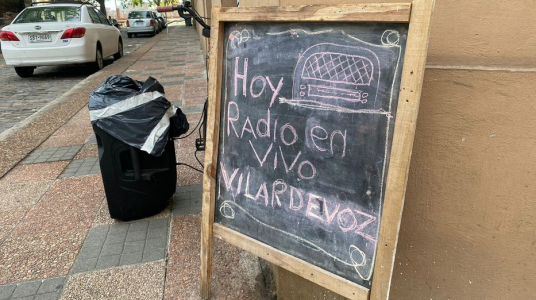 Hoy
Radio en
VIVO
VILARDEVOZ